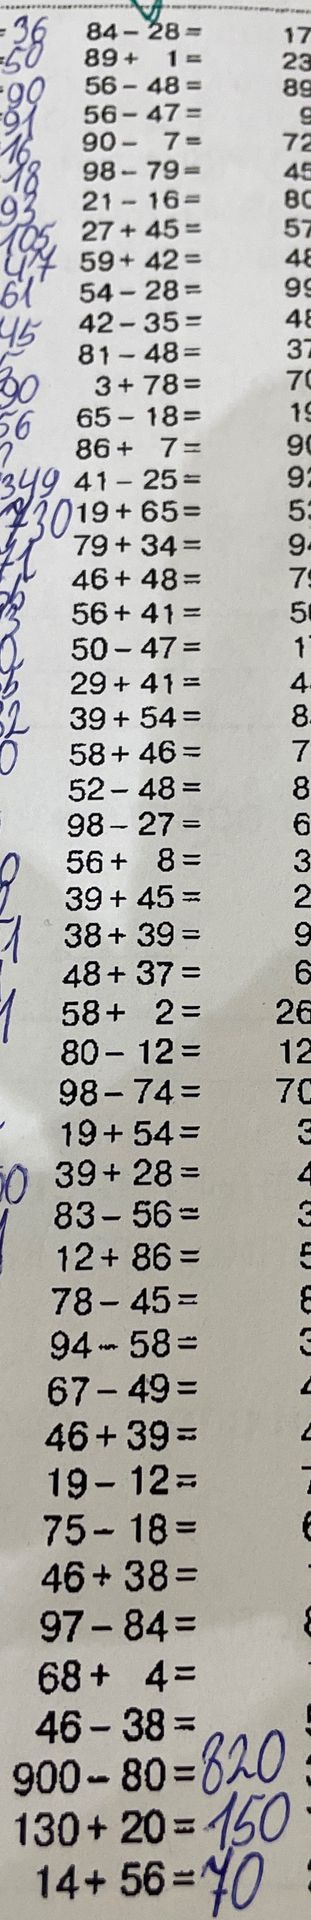 =36 84 - 28 = 17
=50 89 + 1 = 23
=90 56 - 48 = 89
=91 56 - 47 = 9
16 90 - 7 = 72
18 98 - 79 = 45
93 21 - 16 = 80
105 27 + 45 = 57
47 59 + 42 = 48
61 54 - 28 = 99
45 42 - 35 = 48
81 - 48 = 37
90 3 + 78 = 70
56 65 - 18 = 19
86 + 7 = 90
349 41 - 25 = 92
730 19 + 65 = 5
71 79 + 34 = 9
46 + 48 = 7
56 + 41 = 5
50 - 47 = 1
29 + 41 = 4
39 + 54 = 8
58 + 46 = 7
52 - 48 = 8
98 - 27 = 6
56 + 8 = 3
39 + 45 = 2
38 + 39 = 9
48 + 37 = 6
58 + 2 = 26
80 - 12 = 12
98 - 74 = 70
19 + 54 = 3
39 + 28 = 4
83 - 56 = 3
12 + 86 = 5
78 - 45 = 8
94 - 58 = 3
67 - 49 =
46 + 39 =
19 - 12 =
75 - 18 =
46 + 38 =
97 - 84 =
68 + 4 =
46 - 38 =
900 - 80 = 820
130 + 20 = 150
14 + 56 = 70